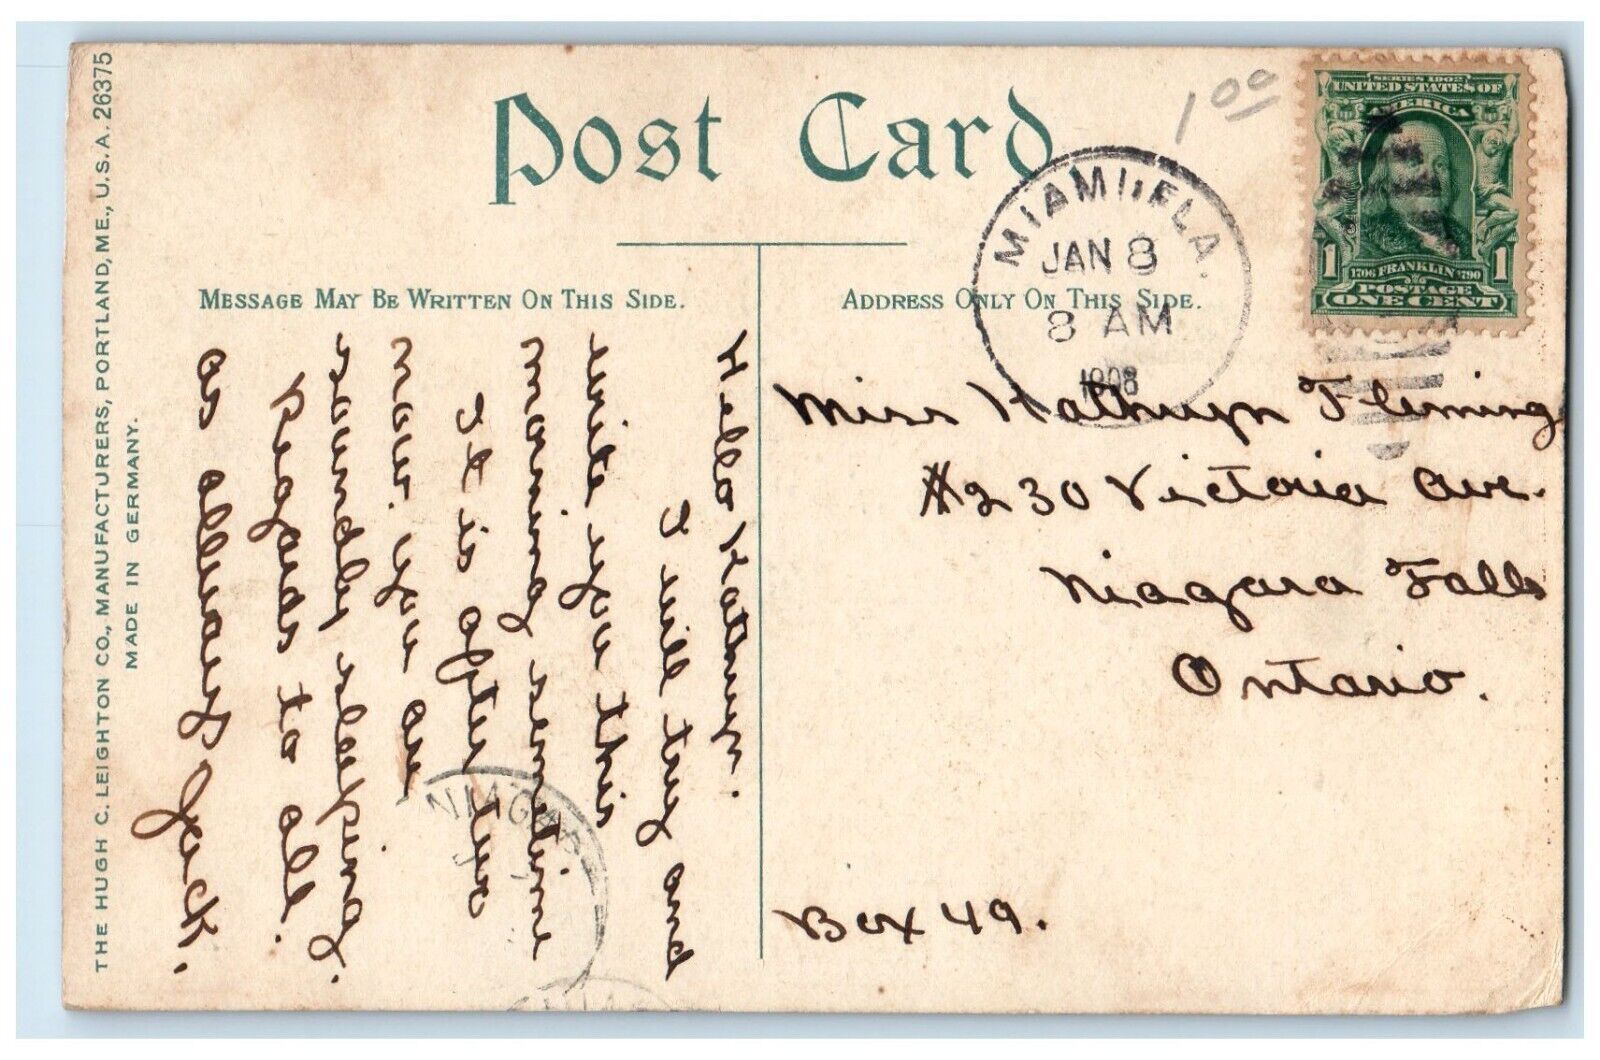 THE HUGH C. LEIGHTON CO., MANUFACTURERS, PORTLAND, ME., U.S.A. 26375
MADE IN GERMANY.
Post Card
1 00
MESSAGE MAY BE WRITTEN ON THIS SIDE.
ADDRESS ONLY ON THIS SIDE.
MIAMI, FLA.
JAN 8
8 AM
1908
SERIES 1902
UNITED STATES OF
AMERICA
1 1
1706 FRANKLIN 1790
POSTAGE
ONE CENT
Hello Kathryn.
I will try and
write you this
morning sometime
It is after two
now. you are
soundly sleeping.
Regards to all.
as always Jack.
NIAGAR
Miss Kathryn Fleming
#230 Victoria Ave.
Niagara Falls
Ontario.
Box 49.